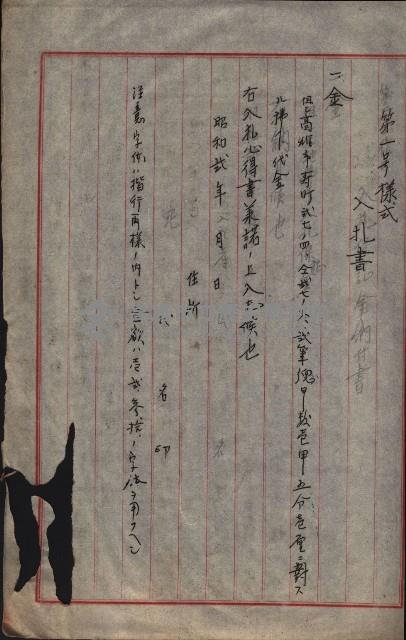 第一号様式
入札書
一金
但高雄市寿町弐七八四 全弐七八 弐筆總甲数壱甲五分壱厘ニ対ス
ル 代金
右入札心得書承諾ノ上入札候也
昭和弐年 月 日
住所
氏名 印
注意 字体ハ楷行両様ノ内トシ 金額ハ壱弐参拾ノ字体ヲ用フヘシ